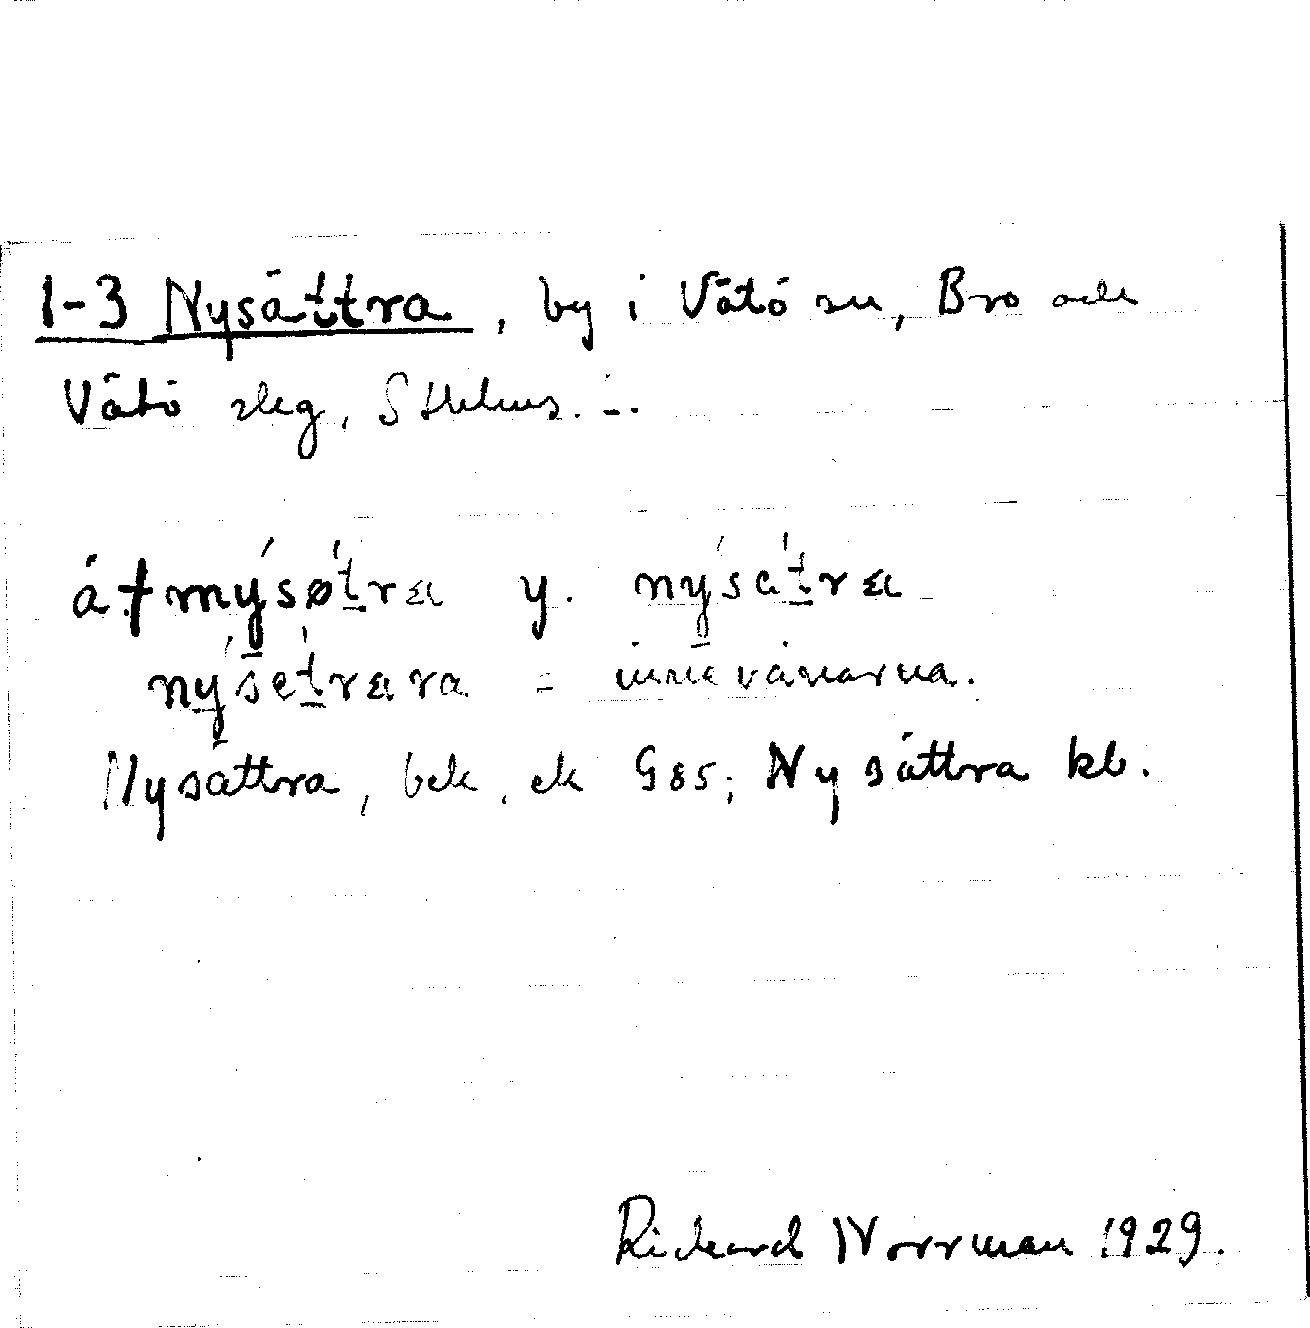 1-3 Nysättra, by i Vätö sn, Bro och
Vätö slg, Sthlms. -.
nýsø̀tra y. nýsætra
nýsetrara = innevånarna.
Nysättra, bek, ek G85; Nysättra kb.
Richard Norrman 1929.